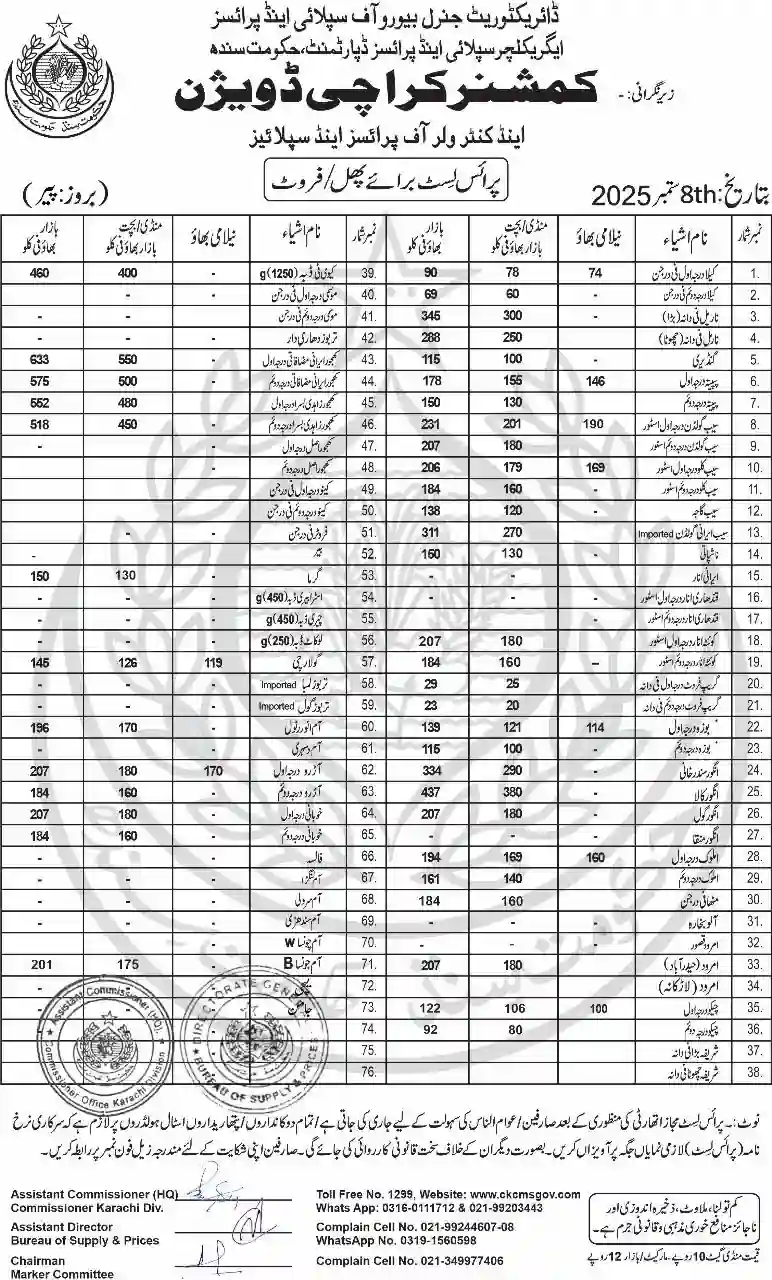 ڈائریکٹوریٹ جنرل بیورو آف سپلائی اینڈ پرائسز
ایگریکلچر سپلائی اینڈ پرائسز ڈپارٹمنٹ، حکومت سندھ
زیر نگرانی: - کمشنر کراچی ڈویژن
اینڈ کنٹرولر آف پرائسز اینڈ سپلائیز
پرائس لسٹ برائے پھل/فروٹ
بتاریخ: 8th ستمبر 2025 (بروز: پیر)
نمبر شمار نام اشیاء نیلامی بھاؤ منڈی/بچت بازار بھاؤ فی کلو بازار بھاؤ فی کلو نمبر شمار نام اشیاء نیلامی بھاؤ منڈی/بچت بازار بھاؤ فی کلو بازار بھاؤ فی کلو
1. کیلا درجہ اول فی درجن 74 78 90 39. کیوی فی ڈبہ (1250)g - 400 460
2. کیلا درجہ دوئم فی درجن - 60 69 40. موسمی درجہ اول فی درجن - - -
3. ناریل فی دانہ (بڑا) - 300 345 41. موسمی درجہ دوئم فی درجن - - -
4. ناریل فی دانہ (چھوٹا) - 250 288 42. تربوز دھاری دار - - -
5. گنڈیری - 100 115 43. کھجور ایرانی مضافاتی درجہ اول - 550 633
6. پپیتہ درجہ اول 146 155 178 44. کھجور ایرانی مضافاتی درجہ دوئم - 500 575
7. پپیتہ درجہ دوئم - 130 150 45. کھجور زاہدی بسرا درجہ اول - 480 552
8. سیب گولڈن درجہ اول اسٹور 190 201 231 46. کھجور زاہدی بسرا درجہ دوئم - 450 518
9. سیب گولڈن درجہ دوئم اسٹور - 180 207 47. کھجور اصل درجہ اول - - -
10. سیب کلو درجہ اول اسٹور 169 179 206 48. کھجور اصل درجہ دوئم - - -
11. سیب کلو درجہ دوئم اسٹور - 160 184 49. کینو درجہ اول فی درجن
12. سیب گاچہ - 120 138 50. کینو درجہ دوئم فی درجن
13. سیب ایرانی گولڈن Imported - 270 311 51. فروٹر فی درجن - -
14. ناشپاتی - 130 150 52. بیر - -
15. ایرانی انار - - - 53. گرما - 130 150
16. قندھاری انار درجہ اول اسٹور - - - 54. اسٹرابیری ڈبہ (450)g - - -
17. قندھاری انار درجہ دوئم اسٹور - - - 55. چیری ڈبہ (450)g
18. کوئٹہ انار درجہ اول اسٹور - 180 207 56. لوکاٹ ڈبہ (250)g - - -
19. کوئٹہ انار درجہ دوئم اسٹور - 160 184 57. گولارچی 119 126 145
20. گریپ فروٹ درجہ اول فی دانہ - 25 29 58. تربوز لمبا Imported - - -
21. گریپ فروٹ درجہ دوئم فی دانہ - 20 23 59. تربوز گول Imported - - -
22. بوزہ درجہ اول 114 121 139 60. آم انور رٹول - 170 196
23. بوزہ درجہ دوئم - 100 115 61. آم دسہری - - -
24. انگور سندر خانی - 290 334 62. آڑو درجہ اول 170 180 207
25. انگور کالا - 380 437 63. آڑو درجہ دوئم - 160 184
26. انگور گول - 180 207 64. خوبانی درجہ اول - 180 207
27. انگور منقا - - - 65. خوبانی درجہ دوئم - 160 184
28. املوک درجہ اول 160 169 194 66. فالسہ - - -
29. املوک درجہ دوئم - 140 161 67. آم لنگڑا - - -
30. مٹھانی درجن - 160 184 68. آم سرولی - - -
31. آلو بخارہ - - - 69. آم سندھڑی - - -
32. امرود قصور - - - 70. آم چونسا W - - -
33. امرود (حیدرآباد) - 180 207 71. آم چونسا B - 175 201
34. امرود (لاڑکانہ) 72. لیچی
35. چیکو درجہ اول 100 106 122 73. جامن
36. چیکو درجہ دوئم - 80 92 74.
37. شریفہ بڑا فی دانہ 75.
38. شریفہ چھوٹا فی دانہ 76.
Assistant Commissioner (HQ). Commissioner Office Karachi Division
DIRECTORATE GENERAL BUREAU OF SUPPLY & PRICES
نوٹ:۔ پرائس لسٹ مجاز اتھارٹی کی منظوری کے بعد صارفین/عوام الناس کی سہولت کے لیے جاری کی جاتی ہے/تمام دوکانداروں/پتھاریداروں اسٹال ہولڈروں پر لازم ہے کہ سرکاری نرخ
نامہ (پرائس لسٹ) لازمی نمایاں جگہ پر آویزاں کریں۔ بصورت دیگر ان کے خلاف سخت قانونی کارروائی کی جائے گی۔ صارفین اپنی شکایت کے لئے مندرجہ ذیل فون نمبر پر رابطہ کریں۔
Assistant Commissioner (HQ)
Commissioner Karachi Div.
Toll Free No. 1299, Website: www.ckcmsgov.com
Whats App: 0316-0111712 & 021-99203443
Assistant Director
Bureau of Supply & Prices
Complain Cell No. 021-99244607-08
WhatsApp No. 0319-1560598
Chairman
Marker Committee
Complain Cell No. 021-349977406
کم تولنا، ملاوٹ، ذخیرہ اندوزی اور
ناجائز منافع خوری مذہبی و قانونی جرم ہے۔
قیمت منڈی گیٹ 10 روپے۔ مارکیٹ/بازار 12 روپے